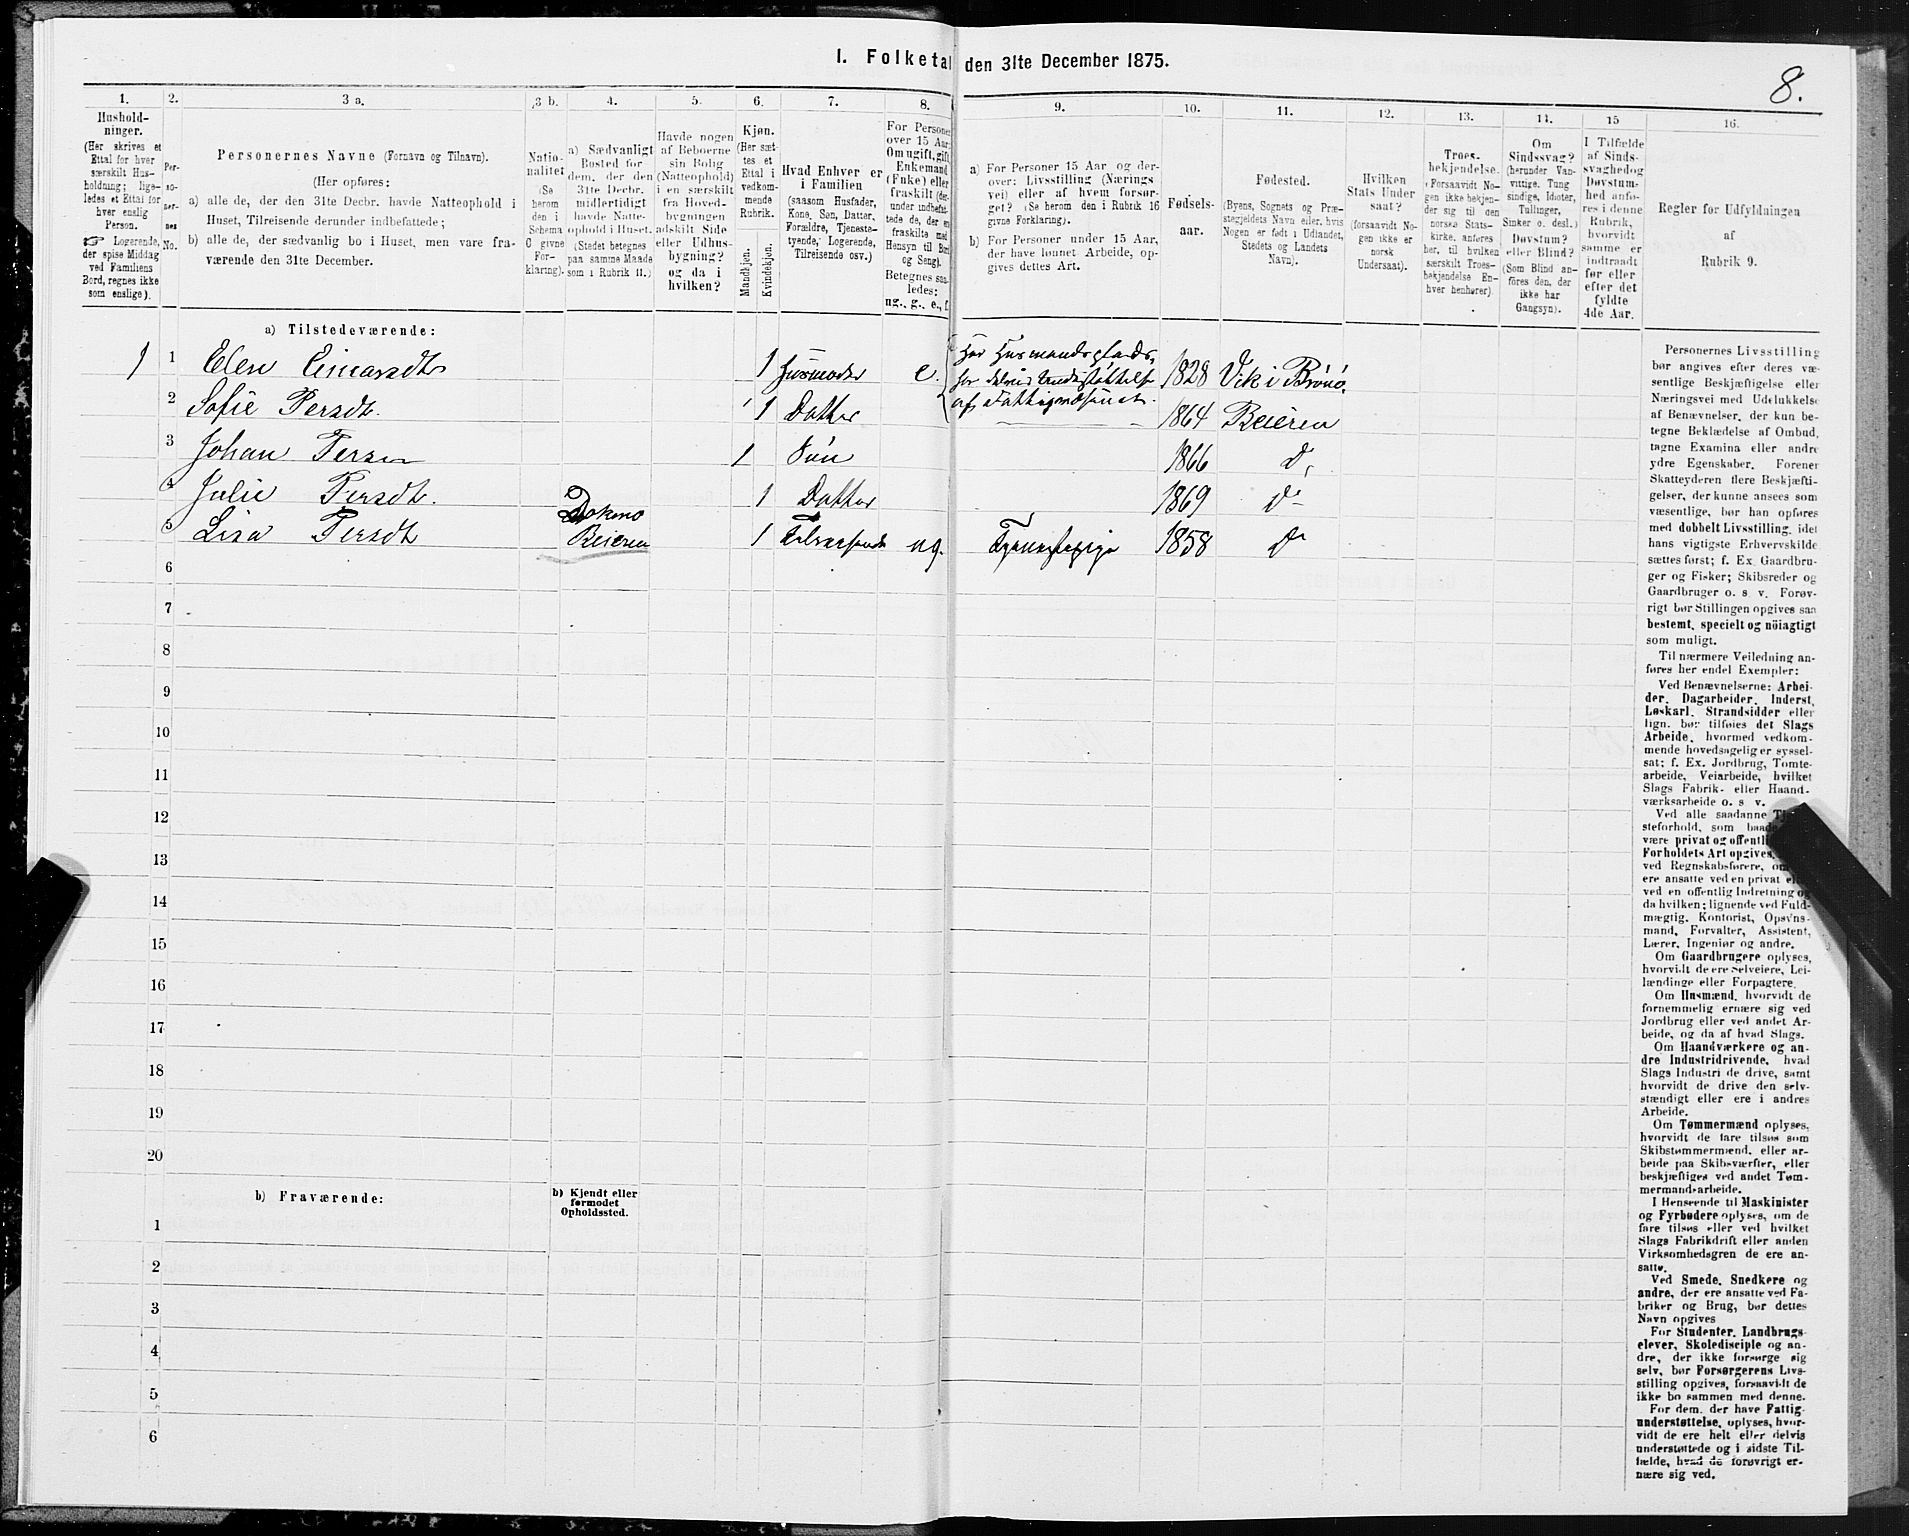 I. Folketal den 31te December 1875.
8.
1.
Hushold-
ninger.
(Her skrives et
Ettal for hver
særskilt Hus-
holdning; lige-
ledes et Ettal for
hver enslig
Person.
☞ Logerende,
der spise Middag
ved Familiens
Bord, regnes ikke
som enslige).
2.
Per-
so-
ner-
nes
No.
3 a.
Personernes Navne (Fornavn og Tilnavn).
(Her opføres:
a) alle de, der den 31te Decbr. havde Natteophold i
Huset, Tilreisende derunder indbefattede;
b) alle de, der sædvanlig bo i Huset, men vare fra-
værende den 31te December.
3 b.
Natio-
nalitet
(Se
herom
den i
Schema
C givne
For-
klaring).
4.
a) Sædvanligt
Bosted for
dem, der den
31te Decbr.
midlertidigt
havde Natte-
ophold i Huset.
(Stedet betegnes
paa samme Maade
som i Rubrik 11.)
5.
Havde nogen
af Beboerne
sin Bolig
(Natteophold)
i en særskilt
fra Hoved-
bygningen
adskilt Side
eller Udhus-
bygning?
og da i
hvilken?
6.
Kjøn.
(Her sæt-
tes et
Ettal i
vedkom-
mende
Rubrik.
Mandkjøn.
Kvindekjøn.
7.
Hvad Enhver er
i Familien
(saasom Husfader,
Kone, Søn, Datter,
Forældre, Tjeneste-
tyende, Logerende,
Tilreisende osv.)
8.
For Personer
over 15 Aar:
Om ugift, gift,
Enkemand
(Enke) eller
fraskilt (der-
under indbefat-
tede de, der ere
fraskilte med
Hensyn til Bord
og Seng).
Betegnes saa-
ledes:
ug., g., e., f.
9.
a) For Personer 15 Aar og der-
over: Livsstilling (Nærings
vei) eller af hvem forsør-
get? (Se herom den i Rubrik 16
givne Forklaring).
b) For Personer under 15 Aar,
der have lønnet Arbeide, op-
gives dettes Art.
10.
Fødsels-
aar.
11.
Fødested.
(Byens, Sognets og Præ-
stegjeldets Navn eller, hvis
Nogen er født i Udlandet,
Stedets og Landets
Navn).
12.
Hvilken
Stats Under
saat?
(forsaavidt No-
gen ikke er
norsk
Undersaat).
13.
Troes-
bekjendelse.
(Forsaavidt No-
gen ikke bekjen-
der sig til den
norske Stats-
kirke, anføres
her, til hvilken
særskilt Troes-
bekjendelse En-
hver henhører).
14.
Om
Sindssvag?
(herunder Van-
vittige, Tung
sindige, Idioter,
Tullinger,
Sinker o. desl.)
Døvstum?
eller Blind?
(Som Blind an-
føres den, der
ikke har
Gangsyn).
15
I Tilfælde
af Sinds-
svaghed og
Døvstum-
hed anfø-
res i denne
Rubrik,
hvorvidt
samme er
indtraadt
før eller
efter det
fyldte
4de Aar.
16.
Regler for Udfyldningen
af
Rubrik 9.
a) Tilstedeværende:
1 1 Elen Einarsdtr 1 Husmoder e. Har Husmandsplads, 1828 Vik i Brønø
før delvis Understøttelse
af Fattigvæsenet.
2 Sofie Persdtr. 1 Datter 1864 Beieren
3 Johan Persen 1 Søn 1866 Do
4 Julie Persdtr. 1 Datter 1869 Do
5 Lisa Persdtr Beieren 1 ug. 1858 Do
6
7
8
9
10
11
12
13
14
15
16
17
18
19
20
b) Fraværende:
b) Kjendt eller
formodet
Opholdssted.
1
2
3
4
5
6
Personernes Livsstilling
bør angives efter deres væ-
sentlige Beskjæftigelse eller
Næringsvei med Udelukkelse
af Benævnelser, der kun be-
tegne Beklædelse af Ombud,
tagne Examina eller andre
ydre Egenskaber. Forener
Skatteyderen flere Beskjæfti-
gelser, der kunne ansees som
væsentlige, bør han opføres
med dobbelt Livsstilling, idet
hans vigtigste Erhvervskilde
sættes først; f. Ex. Gaardbru-
ger og Fisker; Skibsreder og
Gaardbruger o. s. v. Forøv-
rigt bør Stillingen opgives saa
bestemt, specielt og nöiagtigt
som muligt.
Til nærmere Veiledning an-
føres her endel Exempler:
Ved Benævnelserne: Arbei-
der, Dagarbeider, Inderst,
Løskarl, Strandsidder eller
lign. bør tilføies det Slags
Arbeide, hvormed vedkom-
mende hovedsagelig er syssel-
sat; f. Ex. Jordbrug, Tomte-
arbeide, Veiarbeide, hvilket
Slags Fabrik- eller Haand-
værksarbeide o. s. v.
Ved alle saadanne
steforhold, som
være privat og
Forholdets Art opgives,
ved Regnskabsførere,
ere ansatte ved en privat
ved en offentlig Indretning og
da hvilken; lignende ved Fuld-
mægtig, Kontorist, Opsyns-
mand, Forvalter, Assistent,
Lærer, Ingeniør og andre.
Om Gaardbrugere oplyses,
hvorvidt de ere Selveiere, Lei-
lændinge eller Forpagtere.
Om Husmænd, hvorvidt de
fornemmelig ernære sig ved
Jordbrug eller ved andet Ar-
beide, og da af hvad Slags.
Om Haandværkere og an-
dre Industridrivende, hvad
Slags Industri de drive, samt
hvorvidt de drive den selv-
stændigt eller ere i andres
Arbeide.
Om Tømmermænd oplyses,
hvorvidt de fare tilsøs som
Skibstømmermænd, eller ar-
beide paa Skibsværfter, eller
beskjæftiges ved andet Tøm-
mermandsarbeide.
I Henseende til Maskinister
og Fyrbødere oplyses, om de
fare tilsøs eller ved hvilket
Slags Fabrikdrift eller anden
Virksomhedsgren de ere an-
satte.
Ved Smede, Snedkere og
andre, der ere ansatte ved Fa-
briker og Brug, bør dettes
Navn opgives
For Studenter, Landbrugs-
elever, Skoledisciple og an-
dre, der ikke forsørge sig
selv, bør Forsørgerens Livs-
stilling opgives, forsaavidt de
ikke bo sammen med denne.
For dem, der have Fattig-
understøttelse, oplyses, hvor-
vidt de ere helt eller delvis
understøttede og i sidste Til-
fælde, hvad de forøvrigt er-
nære sig ved.